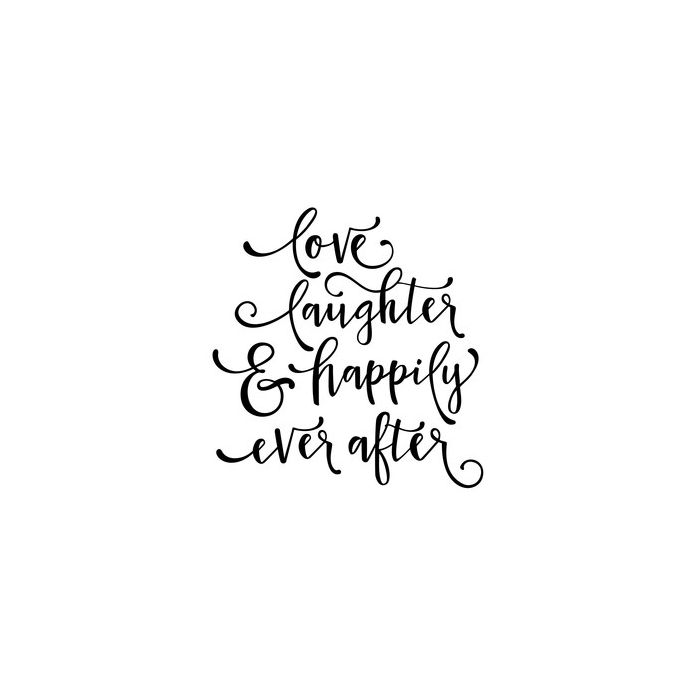 love
laughter
& happily
ever after